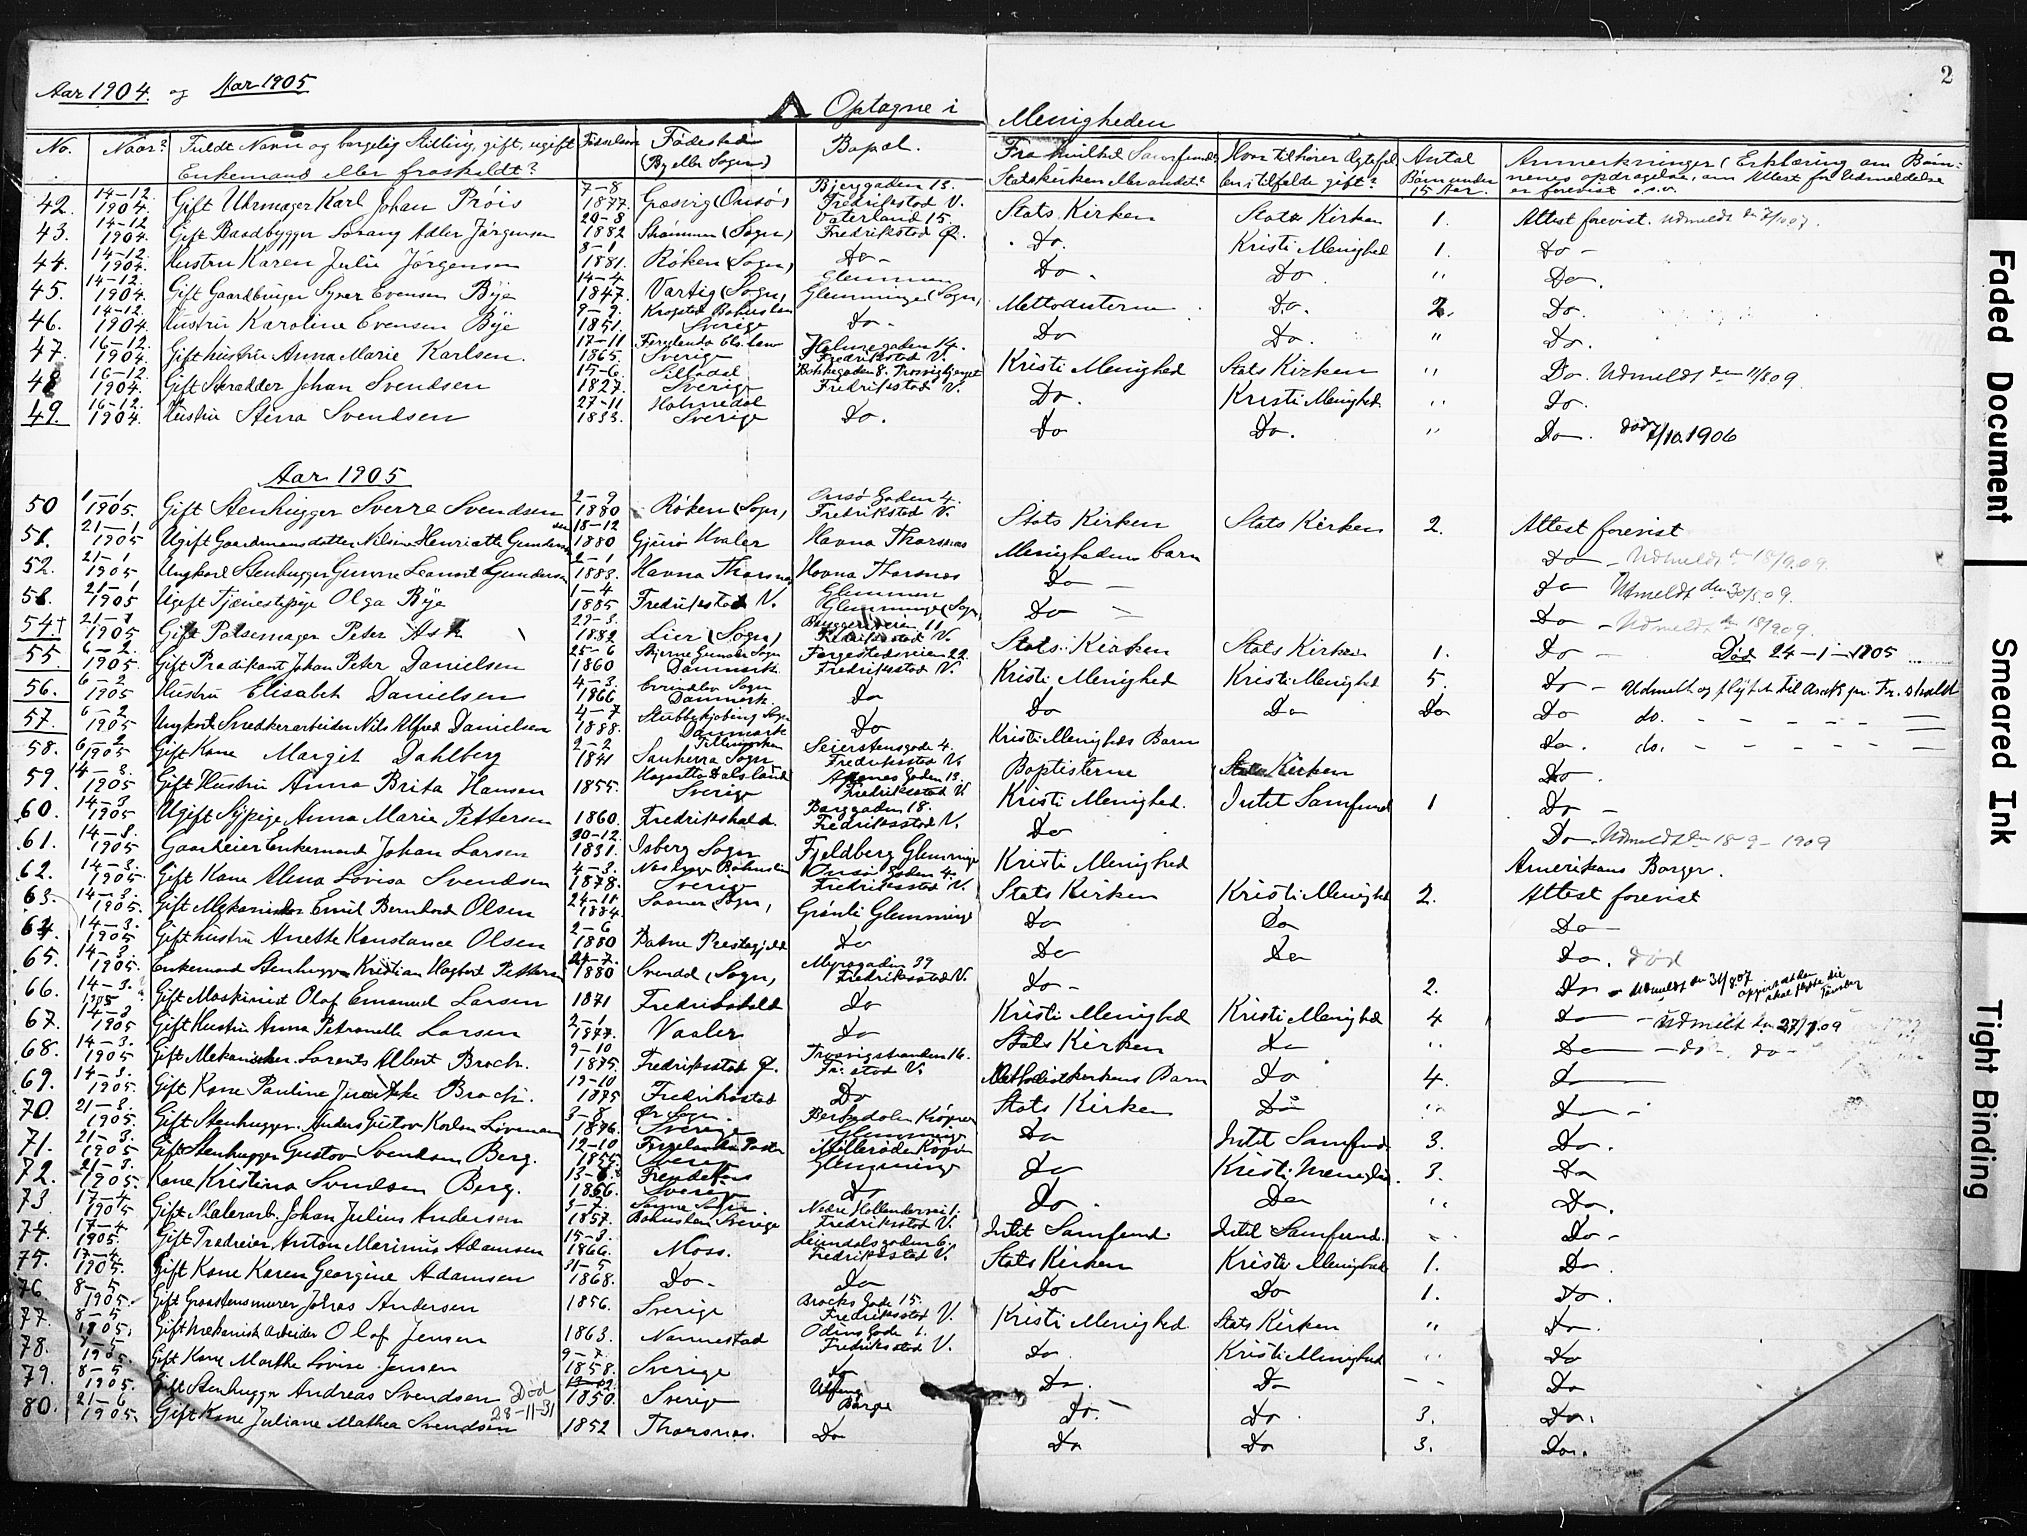 Aar 1904. og Aar 1905
A Optagne i Menigheden
2
No. Naar? Fuldt Navn og borgelig Stilling, gift, ugift Enkemand eller fraskeldt? Fødselsaar Fødested (By eller Sogn) Bopæl. Fra hvilket Samfund Statskirken eller andet? Hvor tilhører Ægtefellen i tilfelde gift? Antal Børn under 15 Aar. Anmerkninger (Erklæring om Børnenes opdragelse, om Attest for Udmeldelse er forevist o.s.v.
42. 14-12. 1904. Gift Uhrmager Karl Johan Prøis 7-8 1877. Græsvig (Onsø) Bjerggaden 13. Fredrikstad V. Stats Kirken Stats Kirken 1. Attest forevist. Udmeldt
43. 14-12 1904. Gift Baadbygger Sorang Adler Jørgensen 20-8 1882 Strømmen (Sogn) Vaterland 15. Fredrikstad Ø. Do. Kristi Menighed 1. Do -
44. 14-12. 1904. Hustru Karen Julie Jørgensen 8-1 1881. Røken (Sogn) Do - Do - Do " Do.
45. 14-12. 1904. Gift Gaardbruger Syver Evensen Bye 14-4. 1847. Varteig (Sogn) Glemmen Glemminge (Sogn) Mettodisterne Do. 2. Do.
46. 14-12. 1904. Hustru Karoline Evensen Bye 9-9. 1851. Krogstad Bohuslen Sverige Do - Do Do. " Do.
47. 16-12. 1904. Gift hustru Anna Marie Karlsen. 17-11 1865. Sverige Holmegaden 14. Fredrikstad V. Kristi Menighed Stats Kirken " Do. Udmeldt d. 11/8 09.
48 16-12. 1904. Gift Skrædder Johan Svendsen 15-6. 1827. Sverige Fredrikstad V. Do. Kristi Menighed " Do.
49. 16-12 1904. Hustru Stena Svendsen 27-11 1833. Holmedal Sverige Do. Do Do. " Do. død 7/10.1906
Aar 1905
50 1-1 1905. Gift Stenhugger Sverre Svendsen 2-9 1880 Røken (Sogn) Onsø Gaden 4. Fredrikstad V. Stats Kirken Stats Kirken 2. Attest forevist
51. 21-1 1905 Ugift Gaardmansdatter Nilsine Henriette Gundersen 18-12 1880 Hvaler Havna Thorsnæs Menighedens barn Do - Udmeldt d. 18/9.09.
52. 21-1 1905 Ungkarl Stenhugger Leonart Gundersen 2-1 1883. Havna Thorsnæs Havna Thorsnæs Do - Do Utmeldt den 30/8 09.
53. 21-1 1905 Ugift Tjenestepige Olga Bye 1-4 1885 Fredrikstad V. Glemmen Glemminge (Sogn) Do - Do - Udmeldt d. 18/9 09.
54+ 21-1 1905 Gift Pølsemager Peter Ask 29-3. 1882 Lier (Sogn) 11 Fredriksstad V. Stats Kirken Stats Kirken 1. Do - Død 24-1-1905
55. 6-2. 1905. Gift Prædikant Johan Peter Danielsen 25-6 1860 Danmark Færgestedsveien 22. Fredriksstad V. Kristi Menighed Kristi Menighed 5. Do - Udmeldt og flyttet til Frhald
56. 6-2 1905 Hustru Elisabet Danielsen 4-3. 1866 Danmark Do Do Do Do Do do. - - - -
57. 6-2 1905 Ungkarl Snedkerarbeider Nils Alfred Danielsen 4-7 1888. Stubbekjøbing Sogn Danmark Do Kristi Menigheds Barn Do. do. - - - -
58. 6-2 1905 Gift Kone Margit Dahlberg 2-2 1841 Seierstensgade 4. Fredriksstad V. Baptisterne Stats Kirken Do.
59. 14-3. 1905 Gift Hustru Anna Brita Hansen 1855. Dalsland Sverige Agnes Gaden 13. Fredriksstad V. Kristi Menighed. Intet Samfund 1 Do -
60. 14-3 1905 Ugift Sypige Anna Marie Pettersen 1860. Fredrikshald. 18. Fredriksstad V. Do Do. Udmeldt den 18-9-1909
61. 14-3. 1905 Gaardeier Enkemand Johan Larsen 30-12. 1831. Isberg Sogn Fjeldberg Glemminge Kristi Menighed Amerikans Borger.
62. 14-3. 1905. Gift Kone Alena Lovisa Svendsen 4-3. 1878. Bohuslen Sverige Onsø Gaden 4. Fredriksstad V. Stats Kirken Kristi Menighed 2. Attest forevist
63. 14-3. 1905. Gift Mekaniker Emil Bernhard Olsen 24-11 1884. Grønli Glemminge Do Do Do -
64. 14-3. 1905 Gift hustru Anette Konstance Olsen 2-6 1880 Præstegjeld Do Do Do Do. død
65. 14-3 1905. Enkemand Stenhugger Kristian Hagbart Pettersen 24-7. 1880 (Sogn) Myragaden 39 Fredriksstad V. Do - 2. Do - Udmeldt den 31/8.07
66. 14-3. 1905 Gift Maskinist Olaf Emanuel Larsen 1871 Fredrikshald Do Kristi Menighed Kristi Menighed 4 Do - Udmeldt den 27/7.09
67. 14-3 1905 Gift Hustru Anna Petronelle Larsen 2-1 1877. Vaaler Do Stats Kirken Do " Do - do - do -
68. 14-3. 1905 Gift Mekaniker Lorents Albert Broch. 9-10 1875. Fredriksstad Ø. Trosvigstranden 16. Fr. stad V. Methodistkerkens Barn Do 4. Do
69. 14-3. 1905. Gift Kone Pauline Broch. 19-10 1875 Fredrikstad Do Stats Kirken Do " Do -
70. 21-3. 1905. Gift Stenhugger. Anders Gustav Karlsen 3-8. 1876. Ør Sogn Sverige Glemminge Do Intet Samfund 3. Do.
71. 21-3. 1905 Gift Stenhugger Gustav Svendsen Berg. 12-10 1855 Sverig Glemminge Do Kristi Menighed. 3. Do
72. 21-3. 1905. Kone Kristina Svendsen Berg. 1866. Sverige Do Do. Do " Do.
73 17-4 1905 Gift Malerarb. Johan Julius Andersen 3-7. 1857. Bohuslen Sverige Nedre Hollenderveien 1. Fredriksstad V. Intet Samfund. Intet Samfund. " Do -
74. 17-4 1905. Gift Anton Marinus Adamsen 15-3. 1866. Moss. Fredriksstad V. Stats Kirken Kristi Menighed 1. Do.
75. 17-4. 1905. Gift Kone Karen Georgine Adamsen 31-5 1868. Do - Do Do Do 1. Do.
76 8-5 1905. Gift Graastensmurer Johas Andersen 1856. Sverige Brocks Gade 15. Fredriksstad V. Kristi Menighed Stats Kirken " Do.
77. 8-5 1905. Gift Mekanisk Arbeider Olaf Jensen 1863. Nannestad Odins Gade 1. Fredriksstad V. Do. Kristi Menighed " Do
78. 1905. Gift Kone Marthe Lovise Jensen 9-7. 1858. Sverige Do Do. Do - - Do
79. 8-5 1905. Gift Stenhugger Andreas Svendsen Død 28-11-31 1850. Sverige Do. - Do. 3. Do.
80. 21-6 1905. Gift Kone Juliane Mathea Svendsen 1852 Thorsnæs. Do Do Do 3. Do.
Faded Document
Smeared Ink
Tight Binding